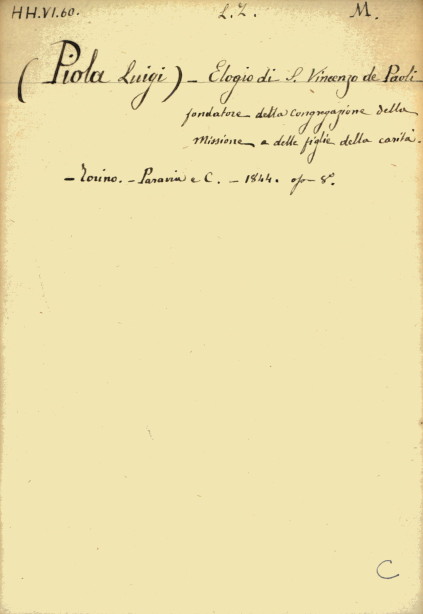 HH.VI.60. L.Z. M.
(Piola Luigi) – Elogio di S. Vincenzo de Paoli
fondatore della Congregazione della
Missione e delle figlie della carità.
– Torino. – Paravia e C. – 1844. opo – 8°.
C